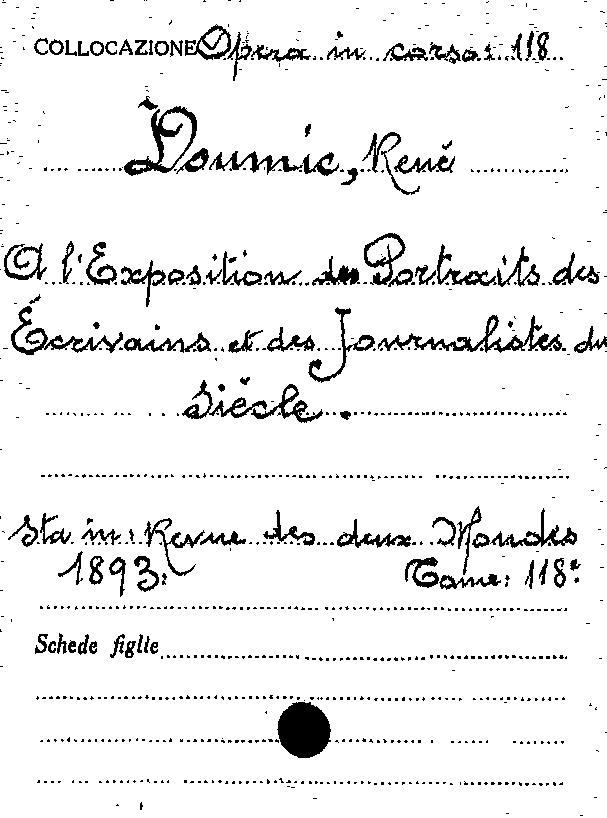 COLLOCAZIONE Opera in corso: 118
Doumic, René
A l'Exposition des Portraits des
Écrivains et des Journalistes du
Siècle.
Sta in: Revue des deux Mondes
1893. Tome: 118°.
Schede figlie